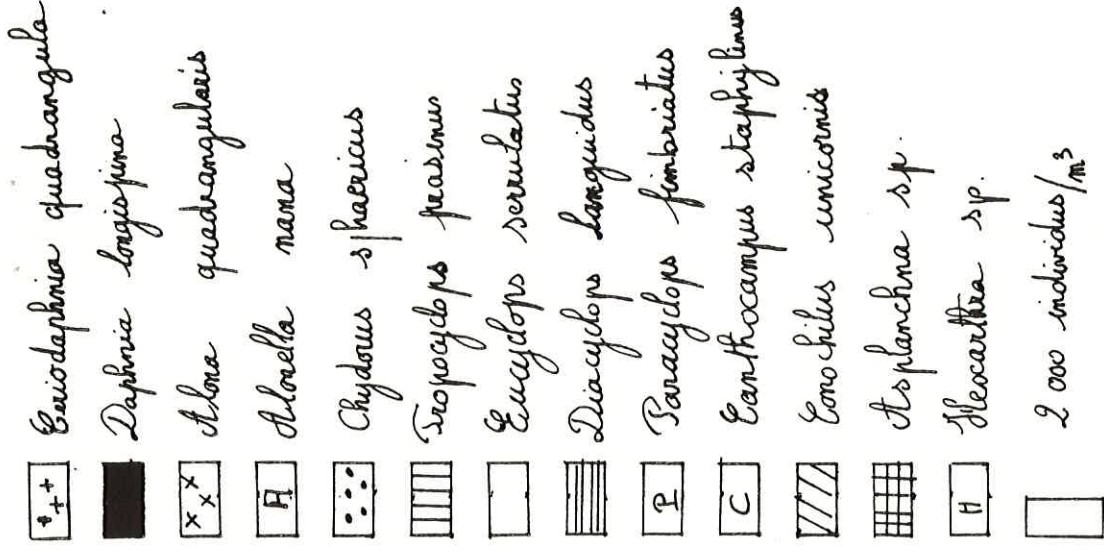 + + + Ceriodaphnia quadrangula
Daphnia longispina
x x x Alona quadrangularis
A Alonella nana
Chydorus sphaericus
Tropocyclops prasinus
Eucyclops serrulatus
Diacyclops languidus
P Paracyclops fimbriatus
C Canthocampus staphylinus
Conochilus unicornis
Asplanchna sp.
H Hexarthra sp.
2 000 individus/m³